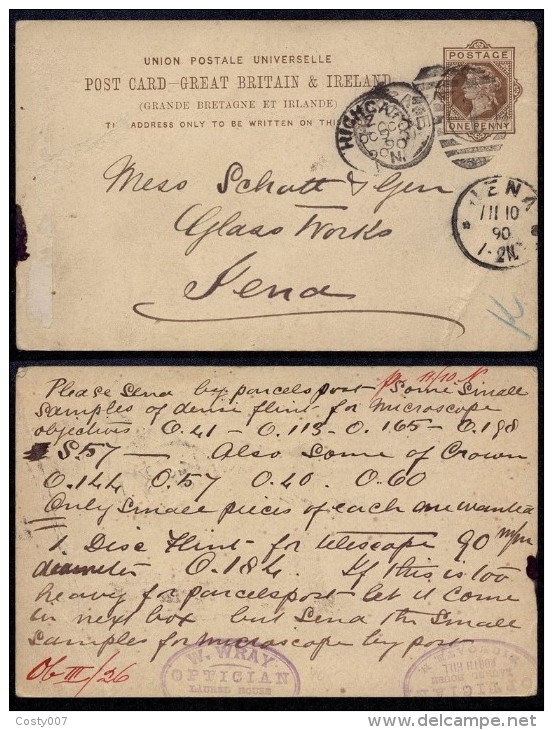 UNION POSTALE UNIVERSELLE
POST CARD—GREAT BRITAIN & IRELAND
(GRANDE BRETAGNE ET IRLANDE)
ADDRESS ONLY TO BE WRITTEN ON
POSTAGE
ONE PENNY
HIGHGATE
90
N.
Mess Schott & Gen
Glass Works
Jena
JENA
11 10
90
Please Send by parcelspost Some Small
Samples of dense flint for Microscope
objectives O.41 — O.113 — O.165 — O.198
S.57 — Also Some of Crown
O.144 O.57 O.40. O.60
Only Small pieces of each one wanted
1 Disc Flint for telescope 90 m/m
diameter O.184. If this is too
heavy for parcelspost let it come
in next box but Send the Small
Samples for microscope by post
Ob III/26
W. WRAY
OPTICIAN
LAUREL HOUSE
W. WRAY
OPTICIAN
LAUREL HOUSE
NORTH HILL
HIGHGATE
Costy007
www.delcampe.net